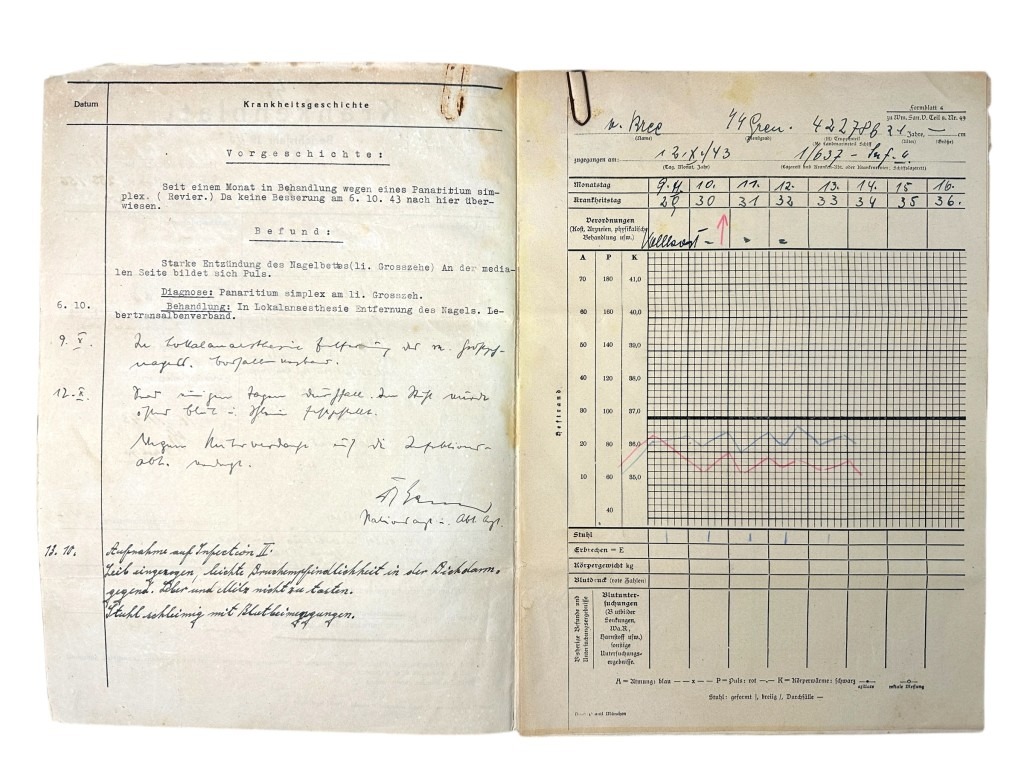 Datum Krankheitsgeschichte
Vorgeschichte:
Seit einem Monat in Behandlung wegen eines Panatitium sim-
plex. ( Revier.) Da keine Besserung am 6. 10. 43 nach hier über-
wiesen.
Befund:
Starke Entzündung des Nagelbettes(li. Grosszehe) An der media-
len Seite bildet sich Puls.
Diagnose: Panaritium simplex am li. Grosszeh.
6. 10. Behandlung: In Lokalanaesthesie Entfernung des Nagels. Le-
bertransalbenverband.
9. X. In Lokalanaesthesie Entfernung des
nagels.
12. X. Seit einigen Tagen Durchfall. Im Stuhl wurde
Blut
Wegen Ruhrverdacht auf die Infektions-
abt. verlegt.
13. 10. Aufnahme auf Infection II.
Leib eingezogen, leichte Druckempfindlichkeit in der Dickdarm-
gegend. Leber und Milz nicht zu tasten.
Stuhl schleimig mit Blutbeimengungen.
Formblatt 4
zu Wm. San. V. Teil 2. Nr. 49
v. Bree Gren. 422786 21 Jahre, — cm
(Name) (Dienstgrad) (Truppenteil) (Alter) (Größe)
zugegangen am: 12.X.43 1/637 - Inf. a.
(Tag, Monat, Jahr)
Monatstag 9. 10. 11. 12. 13. 14. 15 16.
Krankheitstag 29 30 31 32 33 34 35 36.
Verordnungen
(Kost, Arzneien, physikalische
Behandlung usw.) Vollkost -
A P K
70 180 41,0
60 160 40,0
50 140 39,0
40 120 38,0
30 100 37,0
20 80 36,0
10 60 35,0
40
Heftrand.
Stuhl
Erbrechen = E
Körpergewicht kg
Blutdruck (rote Zahlen)
Bisherige Befunde und
Untersuchungsergebnisse
Blutunter-
suchungen
(Blutbilder
Senkungen,
Wa.R,
Harnstoff usw.)
sonstige
Untersuchungs-
ergebnisse.
A = Atmung: blau — — x — — P = Puls: rot —.— K = Körperwärme: schwarz axillare rektale Messung
Stuhl: geformt |, breiig /, Durchfälle —